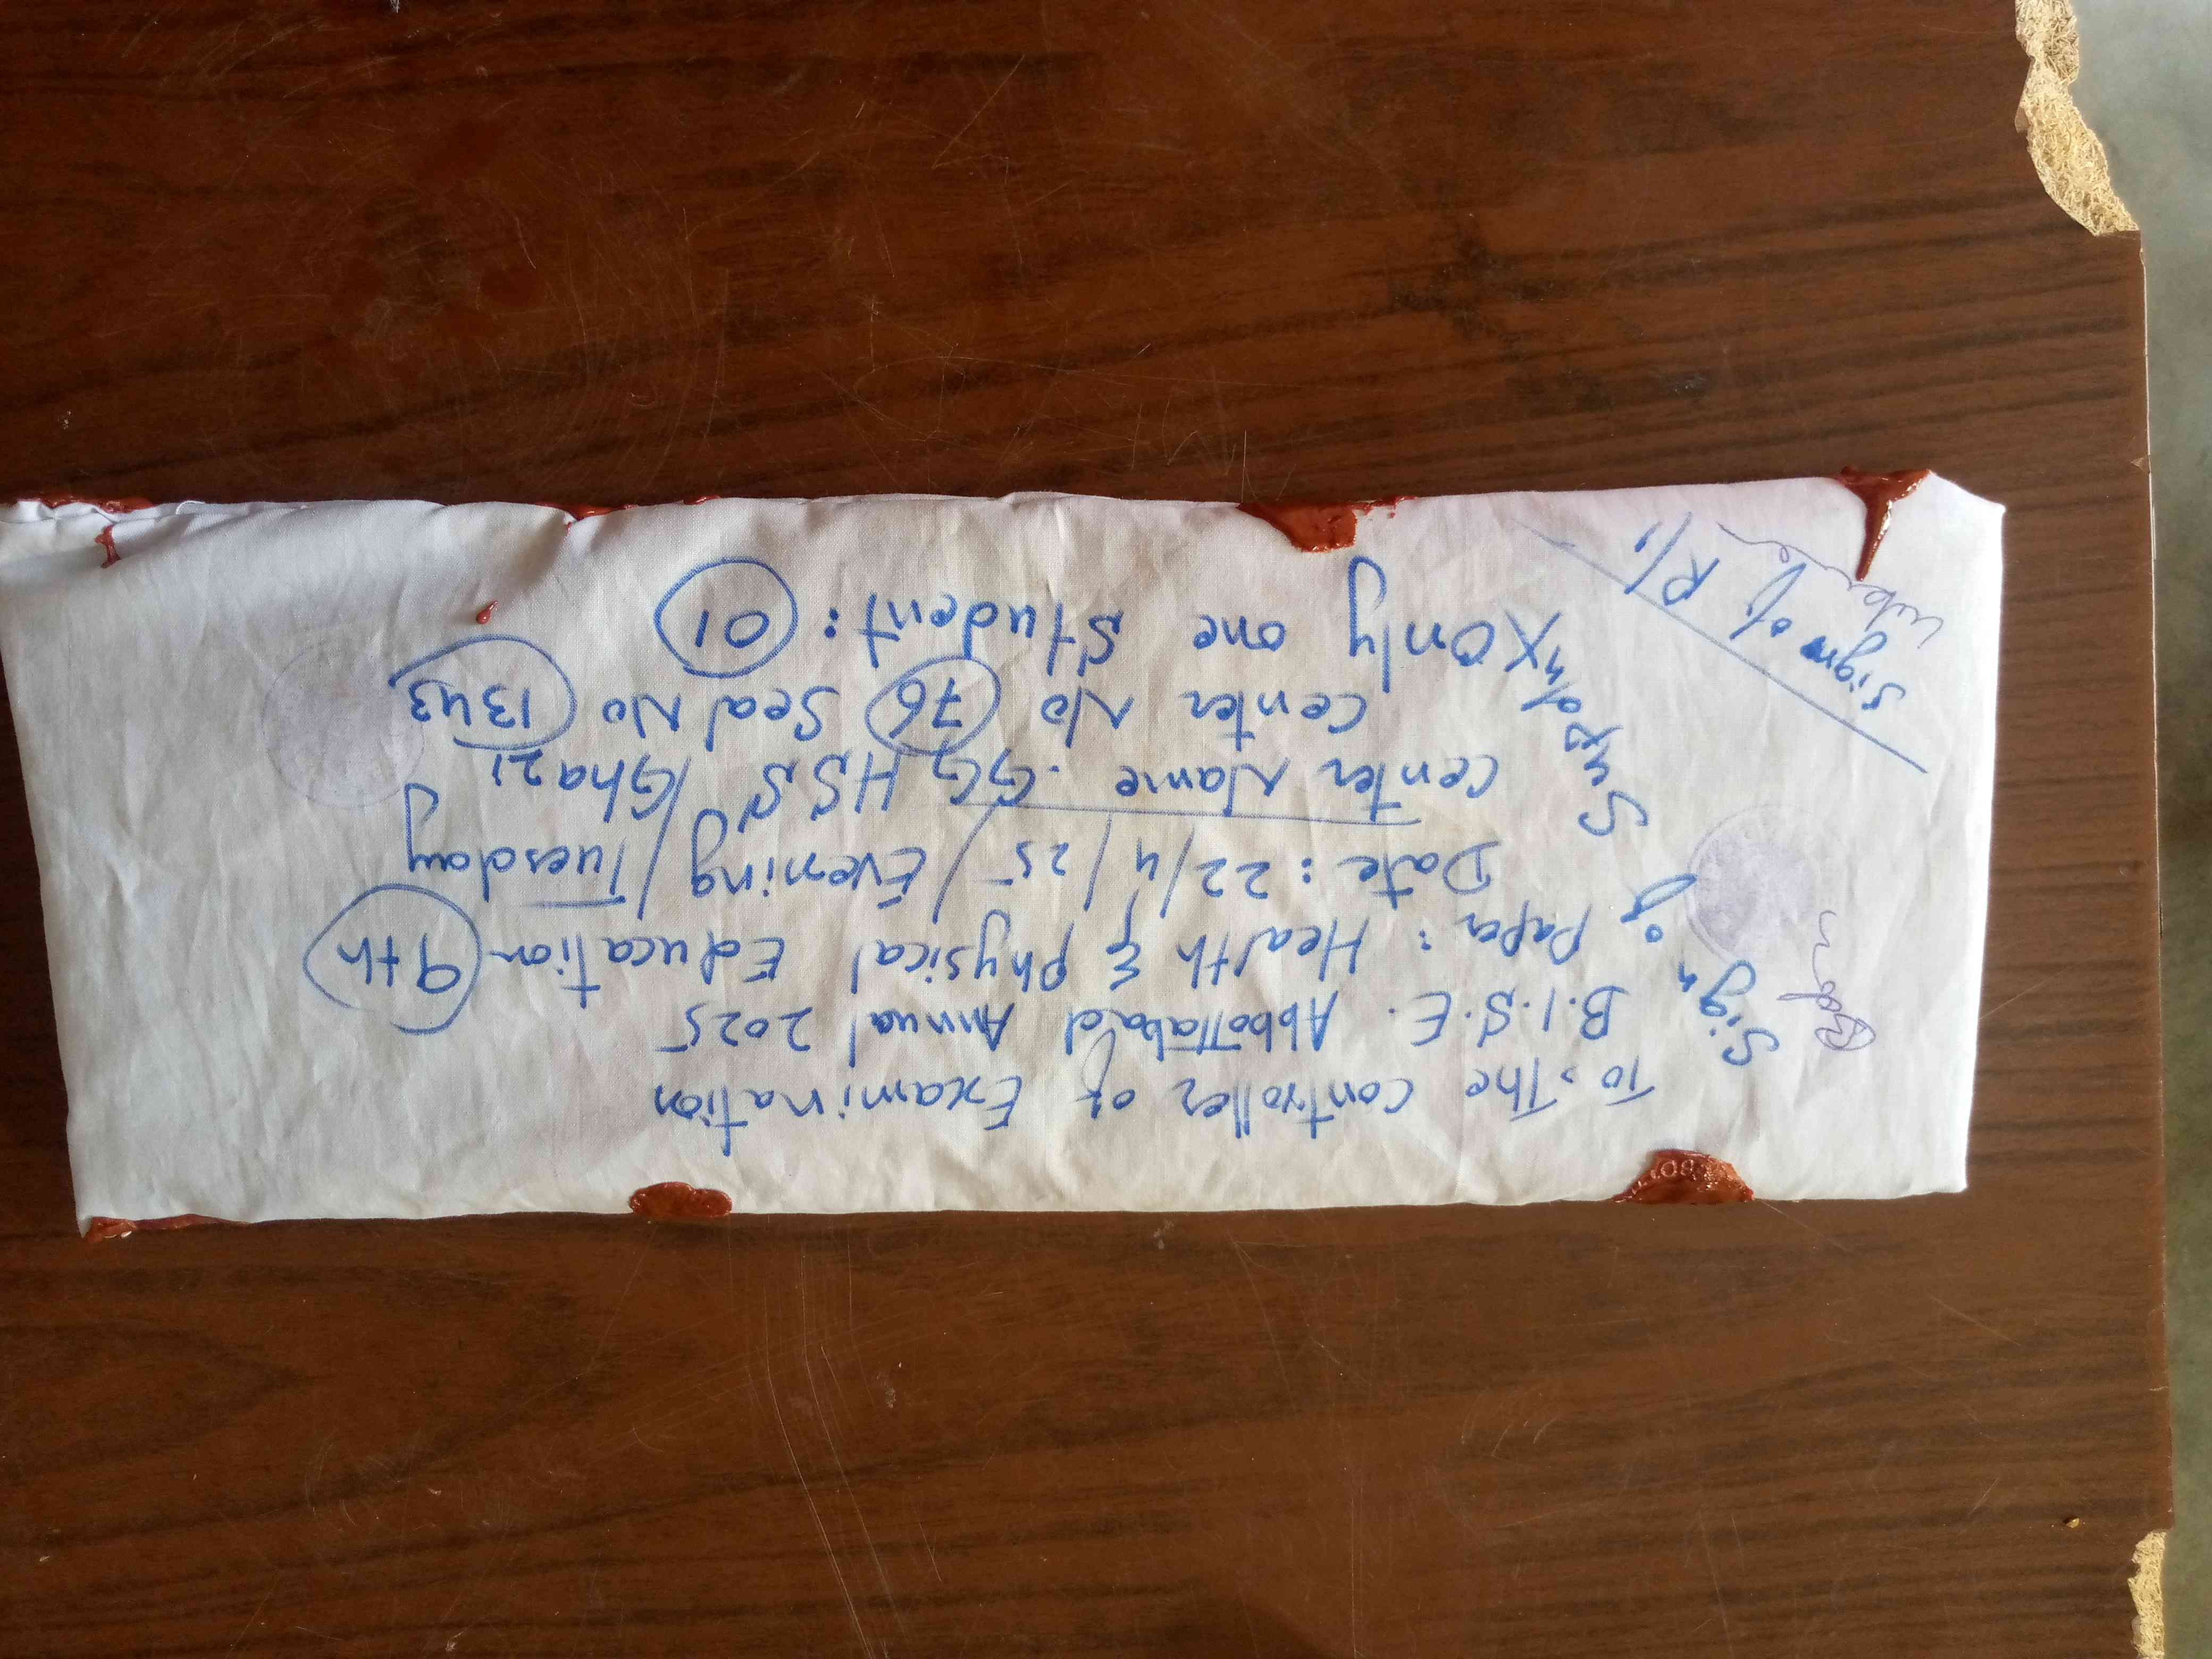 To, The Controller of Examination
B.I.S.E. Abbottabad Annual 2025
Paper: Health & Physical Education 9th
Date: 22/4/25/Evening/Tuesday
Center Name. GGHSS/Ghazi
Center No 76 Seal No 1343
X Only one Student: 01
Sign of
Supdnt
Sign of R/I